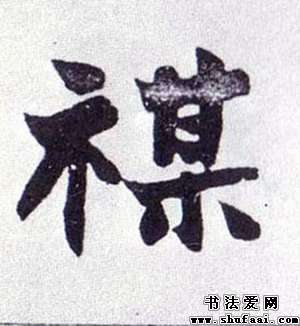 禖
书法爱网
www.shufaai.com